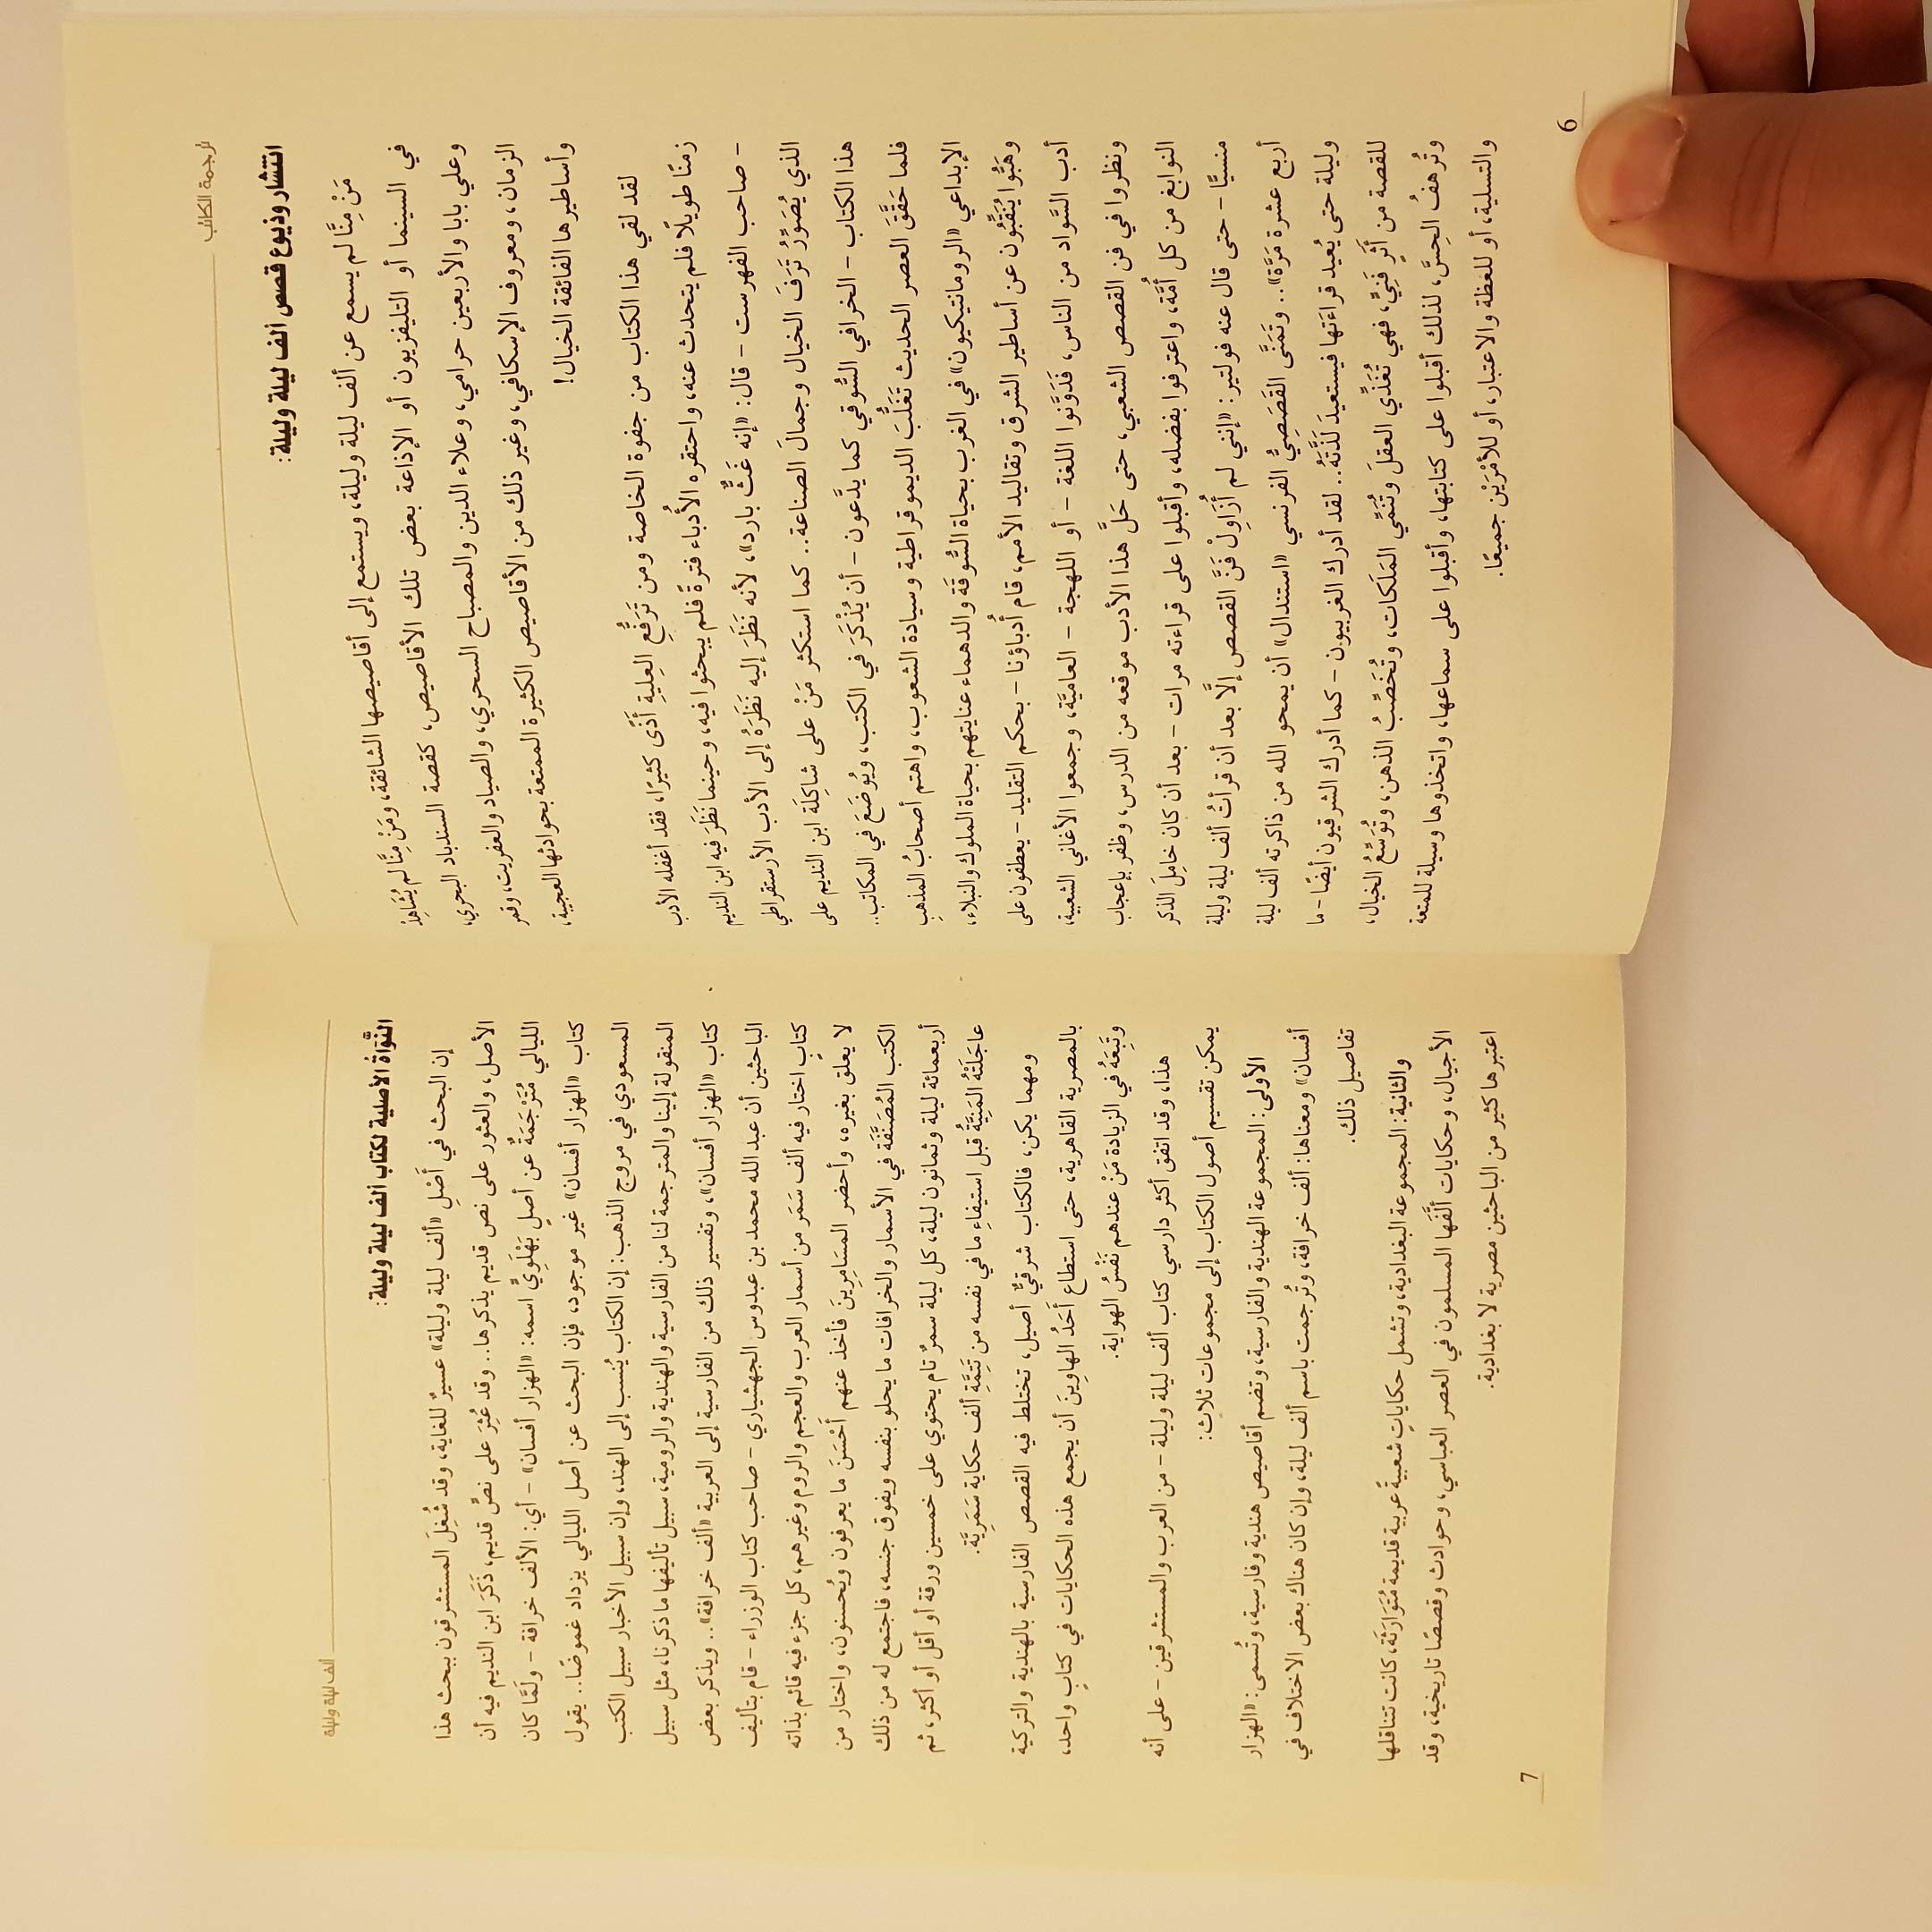 ترجمة الكاتب
انتشار وذيوع قصص ألف ليلة وليلة:
مَنْ مِنَّا لم يسمع عن ألف ليلة وليلة، ويستمع إلى أقاصيصها الشائقة، ومَنْ مِنَّا لم يُشَاهِدْ
في السينما أو التليفزيون أو الإذاعة بعض تلك الأقاصيص، كقصة السندباد البحري،
وعلي بابا والأربعين حرامي، وعلاء الدين والمصباح السحري، والصياد والعفريت، وقمر
الزمان، ومعروف الإسكافي، وغير ذلك من الأقاصيص الكثيرة الممتعة بحوادثها العجيبة،
وأساطيرها الفائقة الخيال!
لقد لقي هذا الكتاب من جفوة الخاصة ومن تَرَفُّعِ العِلية أَذًى كثيرًا، فقد أغفله الأدب
زمنًا طويلًا فلم يتحدث عنه، واحتقره الأُدباء فترةً فلم يبحثوا فيه، وحينما نَظَرَ فيه ابن النديم
- صاحب الفهرست - قال: «إنه غَثٌّ بارد»، لأنه نَظَرَ إليه نَظَرَهُ إلى الأدب الأرستقراطي
الذي يُصَوِّرُ تَرَفَ الخيال وجمالَ الصناعة.. كما استكثر مَنْ على شاكِلَة ابن النديم على
هذا الكتاب - الخرافي السُّوقي كما يدَّعون - أن يُذْكَرَ في الكتب، ويُوضَعَ في المكاتب..
فلما حَقَّقَ العصر الحديث تَغَلُّبَ الديموقراطية وسيادة الشعوب، واهتم أصحابُ المذهبِ
الإبداعي «الرومانتيكيون» في الغرب بحياة السُّوقَة والدهماء عنايتهم بحياة الملوك والنبلاء،
وهَبُّوا يُنَقِّبُون عن أساطير الشرق وتقاليد الأمم، قام أُدباؤنا - بحكم التقليد - يعطفون على
أدب السَّواد من الناس، فَدَوَّنوا اللغة - أو اللهجة - العاميَّة، وجمعوا الأغاني الشعبية،
ونظروا في فن القصص الشعبي، حتى حَلَّ هذا الأدب موقعه من الدرس، وظفر بإعجاب
النوابغ من كل أُمَّة، واعترفوا بفضله، وأقبلوا على قراءته مرات - بعد أن كان خامِلَ الذكر
منسيًّا - حتى قال عنه فولتير: «إنني لم أُزَاوِلْ فَنَّ القصص إلَّا بعد أن قرأتُ ألف ليلة وليلة
أربع عشرة مَرَّة».. وتَمَنَّى القَصَصِيُّ الفرنسي «استندال» أن يمحو الله من ذاكرته ألف ليلة
وليلة حتى يُعيد قراءَتَها فيستعيدَ لَذَّتَهُ.. لقد أدرك الغربيون - كما أدرك الشرقيون أيضًا - ما
للقصة من أَثَرٍ فَنِّيٍّ، فهي تُغَذِّي العقلَ وتُنَمِّي المَلَكات، وتُخَصِّبُ الذهن، وتُوَسِّعُ الخيال،
وتُرهفُ الحِسَّ، لذلك أقبلوا على كتابتها، وأقبلوا على سماعها، واتخذوها وسيلة للمتعة
والتسلية، أو للعظة والاعتبار، أو للأمْرَيْن جميعًا.
6
ألف ليلة وليلة
النَّوَاةُ الأصلية لكتاب ألف ليلة وليلة:
إن البحث في أَصْلِ «ألف ليلة وليلة» عسيرٌ للغاية، وقد شُغِلَ المستشرقون ببحث هذا
الأصل، والعثور على نص قديم يذكرها.. وقد عُثِرَ على نصٍّ قديم، ذَكَرَ ابن النديم فيه أن
الليالي مُتَرْجَمَةٌ عن أصلٍ بَهْلَوِيٍّ اسمه: «الهزار أفسان» - أي: الألف خرافة - ولَمَّا كان
كتاب «الهزار أفسان» غير موجود، فإن البحث عن أصل الليالي يزداد غموضًا.. يقول
المسعودي في مروج الذهب: إن الكتاب يُنسب إلى الهند، وإن سبيل الأخبار سبيل الكتب
المنقولة إلينا والمترجمة لنا من الفارسية والهندية والرومية، سبيل تأليفها ما ذكرنا، مثل سبيل
كتاب «الهزار أفسان»، وتفسير ذلك من الفارسية إلى العربية «ألف خرافة».. ويذكر بعض
الباحثين أن عبد الله محمد بن عبدوس الجهشياري - صاحب كتاب الوزراء - قام بتأليف
كتابٍ اختار فيه ألف سَمَر من أسمار العرب والعجم والروم وغيرهم، كل جزء فيه قائم بذاته
لا يعلق بغيره، وأحضر المسَامِرِينَ فأخذ عنهم أَحْسَنَ ما يعرفون ويُحسنون، واختار من
الكتب المُصَنَّفَة في الأسمار والخرافات ما يحلو بنفسه ويفوق جنسه، فاجتمع له من ذلك
أربعمائة ليلة وثمانون ليلة، كل ليلة سمرٌ تام يحتوي على خمسين ورقة أو أقل أو أكثر، ثم
عاجَلَتْهُ المَنِيَّةُ قبل استيفاءِ ما في نفسه من تَتِمَّةِ ألف حكاية سَمَرِيَّة.
ومهما يكن، فالكتاب شرقيٌّ أصيل، تختلط فيه القصص الفارسية بالهندية والتركية
بالمصرية القاهرية، حتى استطاع أَحَدُ الهاوِينَ أن يجمع هذه الحكايات في كتابٍ واحد،
وتَبِعَهُ في الزيادة مَنْ عندهم نَفْسُ الهواية.
هذا، وقد اتفق أكثر دارسي كتاب ألف ليلة وليلة - من العرب والمستشرقين - على أنه
يمكن تقسيم أصول الكتاب إلى مجموعات ثلاث:
الأولى: المجموعة الهندية والفارسية، وتضم أقاصيص هندية وفارسية، وتُسمى: «الهزار
أفسان» ومعناها: ألف خرافة، وتُرجمت باسم ألف ليلة، وإن كان هناك بعض الاختلاف في
تفاصيل ذلك.
والثانية: المجموعة البغدادية، وتشمل حكاياتٍ شعبيةً عربية قديمة مُتَوَارَثَة، كانت تتناقلها
الأجيال، وحكايات أَلَّفَها المسلمون في العصر العباسي، وحوادث وقصصًا تاريخية، وقد
اعتبرها كثير من الباحثين مصرية لا بغدادية.
7